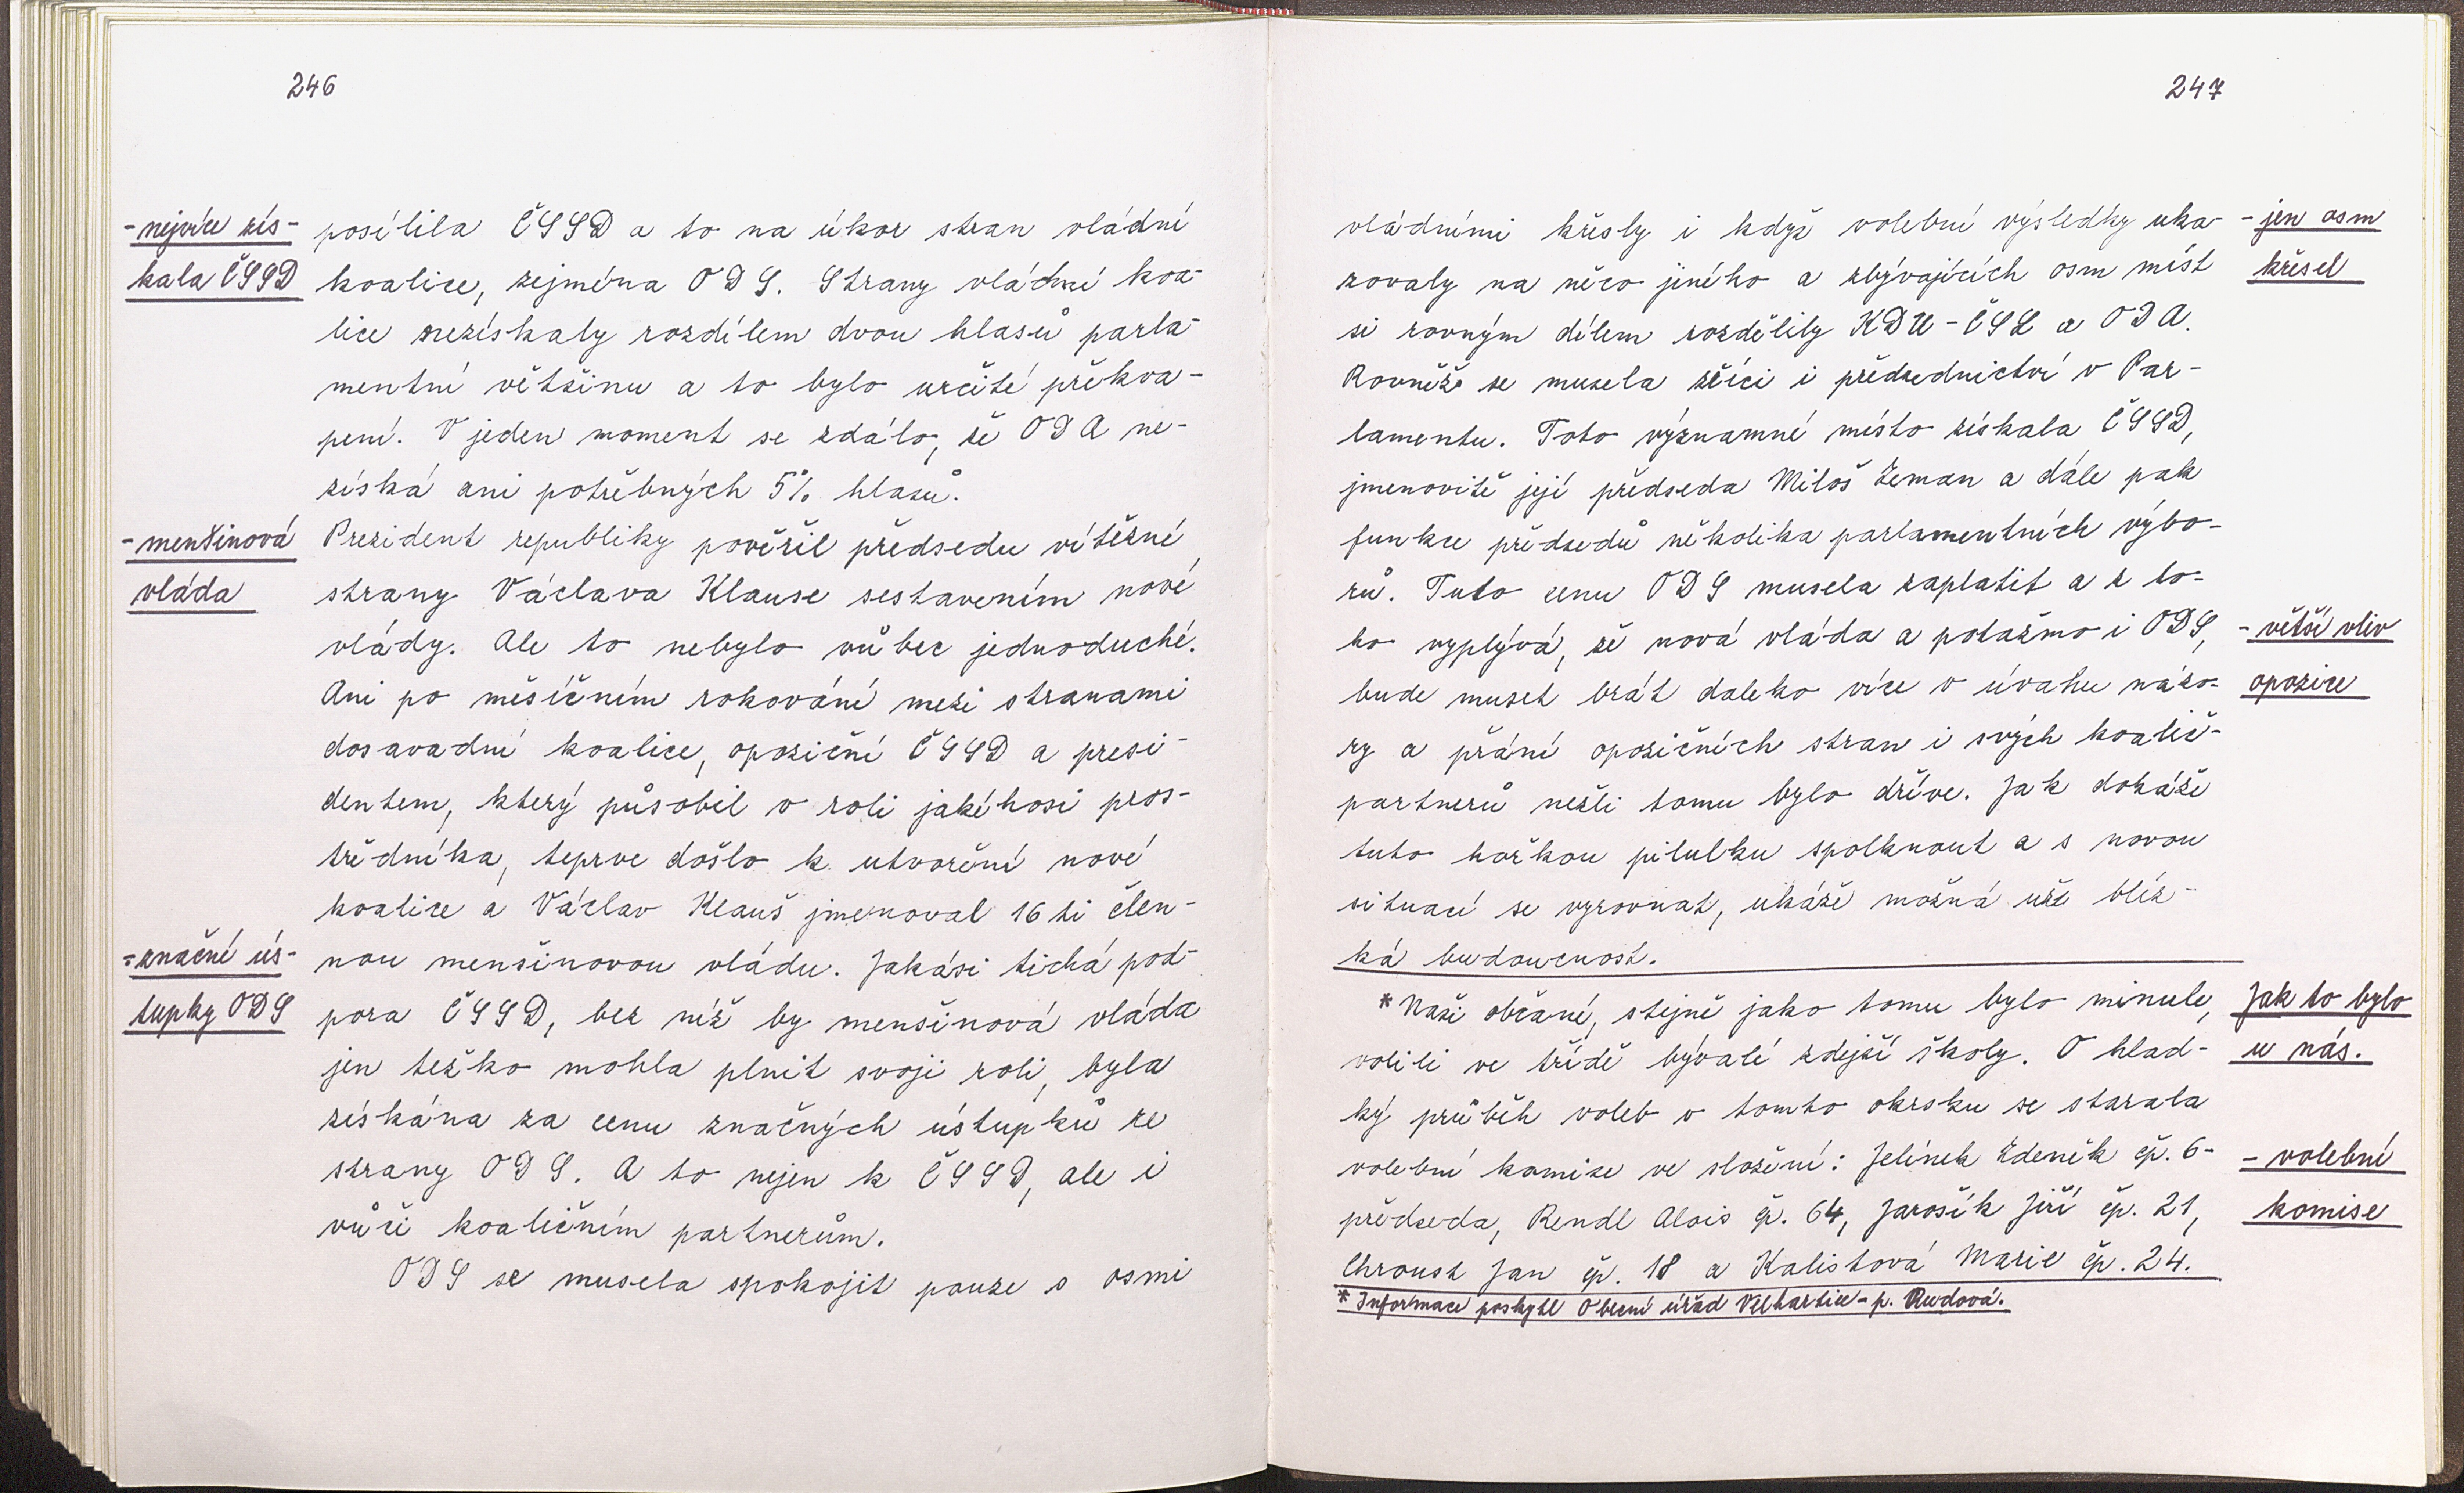 246
-nejvíce zís-
kala ČSSD
posílila ČSSD a to na úkor stran vládní
koalice, zejména ODS. Strany vládní koa-
lice nezískaly rozdílem dvou hlasů parla-
mentní většinu a to bylo určité překva-
pení. V jeden moment se zdálo, že ODA ne-
získá ani potřebných 5% hlasů.
-menšinová
vláda
Prezident republiky pověřil předsedu vítězné
strany Václava Klause sestavením nové
vlády. Ale to nebylo vůbec jednoduché.
Ani po měsíčním rokování mezi stranami
dosavadní koalice, opoziční ČSSD a presi-
dentem, který působil v roli jakéhosi pros-
tředníka, teprve došlo k utvoření nové
koalice a Václav Klauš jmenoval 16 ti člen-
-značné ús-
tupky ODS
nou menšinovou vládu. Jakási tichá pod-
pora ČSSD, bez níž by menšinová vláda
jen težko mohla plnit svoji roli, byla
získána za cenu značných ústupků ze
strany ODS. A to nejen k ČSSD, ale i
vůči koaličním partnerům.
ODS se musela spokojit pouze s osmi
247
vládními křesly i když volební výsledky uka-
zovaly na něco jiného a zbývajících osm míst
si rovným dílem rozdělily KDU-ČSL a ODA.
Rovněž se musela zříci i předsednictví v Par-
lamentu. Toto významné místo získala ČSSD,
jmenovitě její předseda Miloš Zeman a dále pak
funkce předsedů několika parlamentních výbo-
rů. Tuto cenu ODS musela zaplatit a z to-
ho vyplývá, že nová vláda a potažmo i ODS,
bude muset brát daleko více v úvahu názo-
ry a přání opozičních stran i svých koalič-
partnerů nežli tomu bylo dříve. Jak dokáže
tuto hořkou pilulku spolknout a s novou
situací se vyrovnat, ukáže možná už blíz-
ká budoucnost.
-jen osm
křesel
-větší vliv
opozice
*Naši občané, stejně jako tomu bylo minule,
volili ve třídě bývalé zdejší školy. O hlad-
ký průběh voleb v tomto okrsku se starala
volební komise ve složení: Jelínek Zdeněk čp. 6-
předseda, Rendl Alois čp. 64, Jarošík Jiří čp. 21,
Chroust Jan čp. 18 a Kalistová Marie čp. 24.
Jak to bylo
u nás.
-volební
komise
*Informace poskytl Obecní úřad Velhartice-p. Rudová.